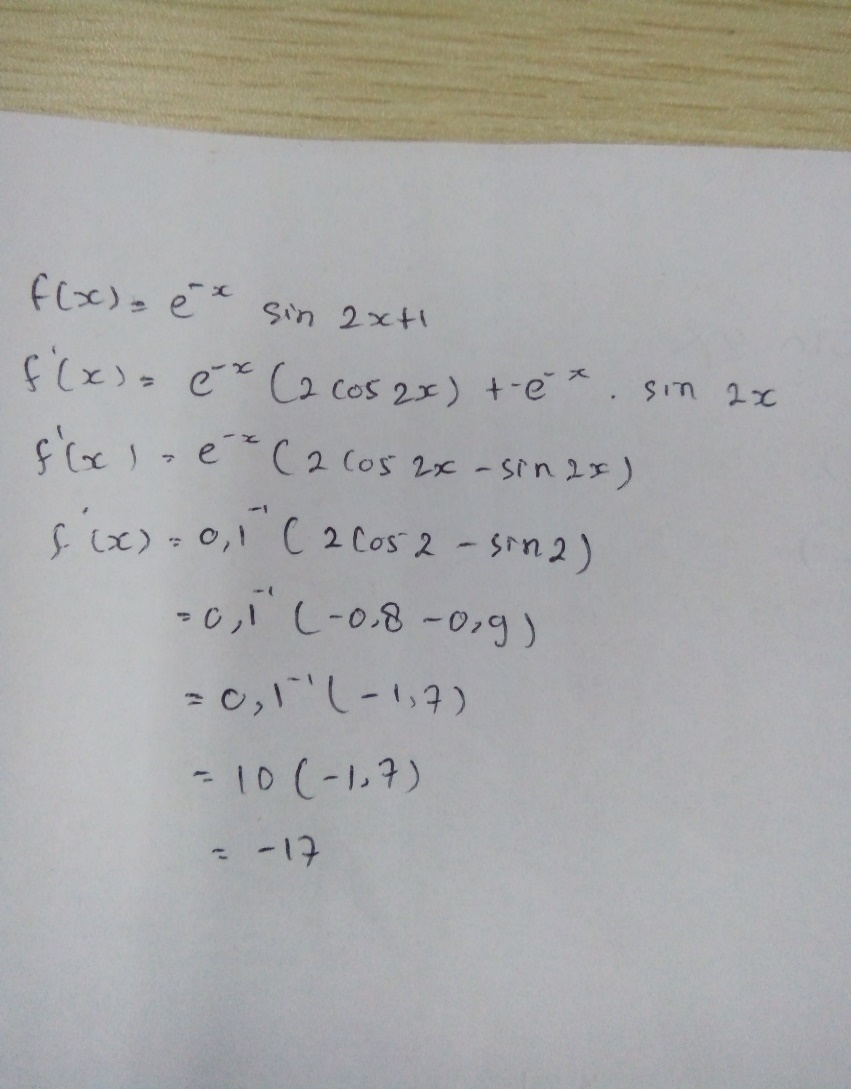 f(x) = e⁻ˣ sin 2x+1
f'(x) = e⁻ˣ (2 cos 2x) + -e⁻ˣ . sin 2x
f'(x) = e⁻ˣ (2 cos 2x - sin 2x)
f'(x) = 0,1⁻¹ (2 cos 2 - sin 2)
= 0,1⁻¹ (-0,8 - 0,9)
= 0,1⁻¹ (-1,7)
= 10 (-1,7)
= -17